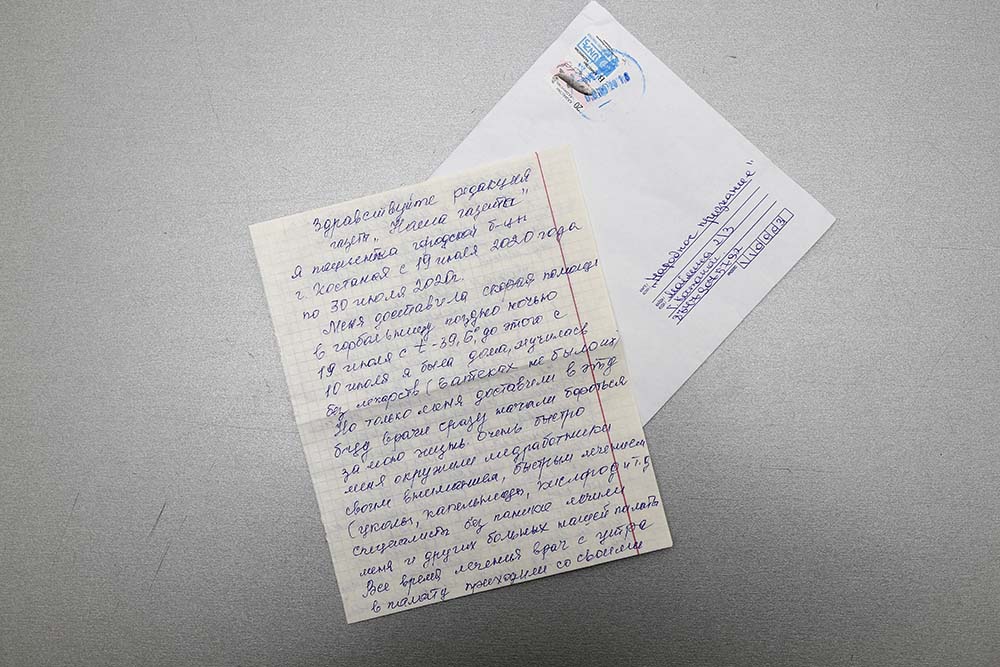 Здравствуйте редакция
газеты "Наша газета"
я пациентка городской б-цы
г. Костаная с 19 июля 2020 года
по 30 июля 2020г.
Меня доставила скорая помощь
в горбольницу поздно ночью
19 июля с t-39,6°, до этого с
10 июля я была дома, мучилась
без лекарств (в аптеках не было их)
Но только меня доставили в эту
б-цу врачи сразу начали бороться
за мою жизнь очень быстро
меня окружили медработники
своим внимания, быстрым лечением
(уколы, капельницы, кислород и т.д
специалисты без паники лечили
меня и других больных нашей палаты
Все время лечения врач с утра
в палату приходили со своими
"Народное признание"
Маяулина 2/3
г. Костанай
20